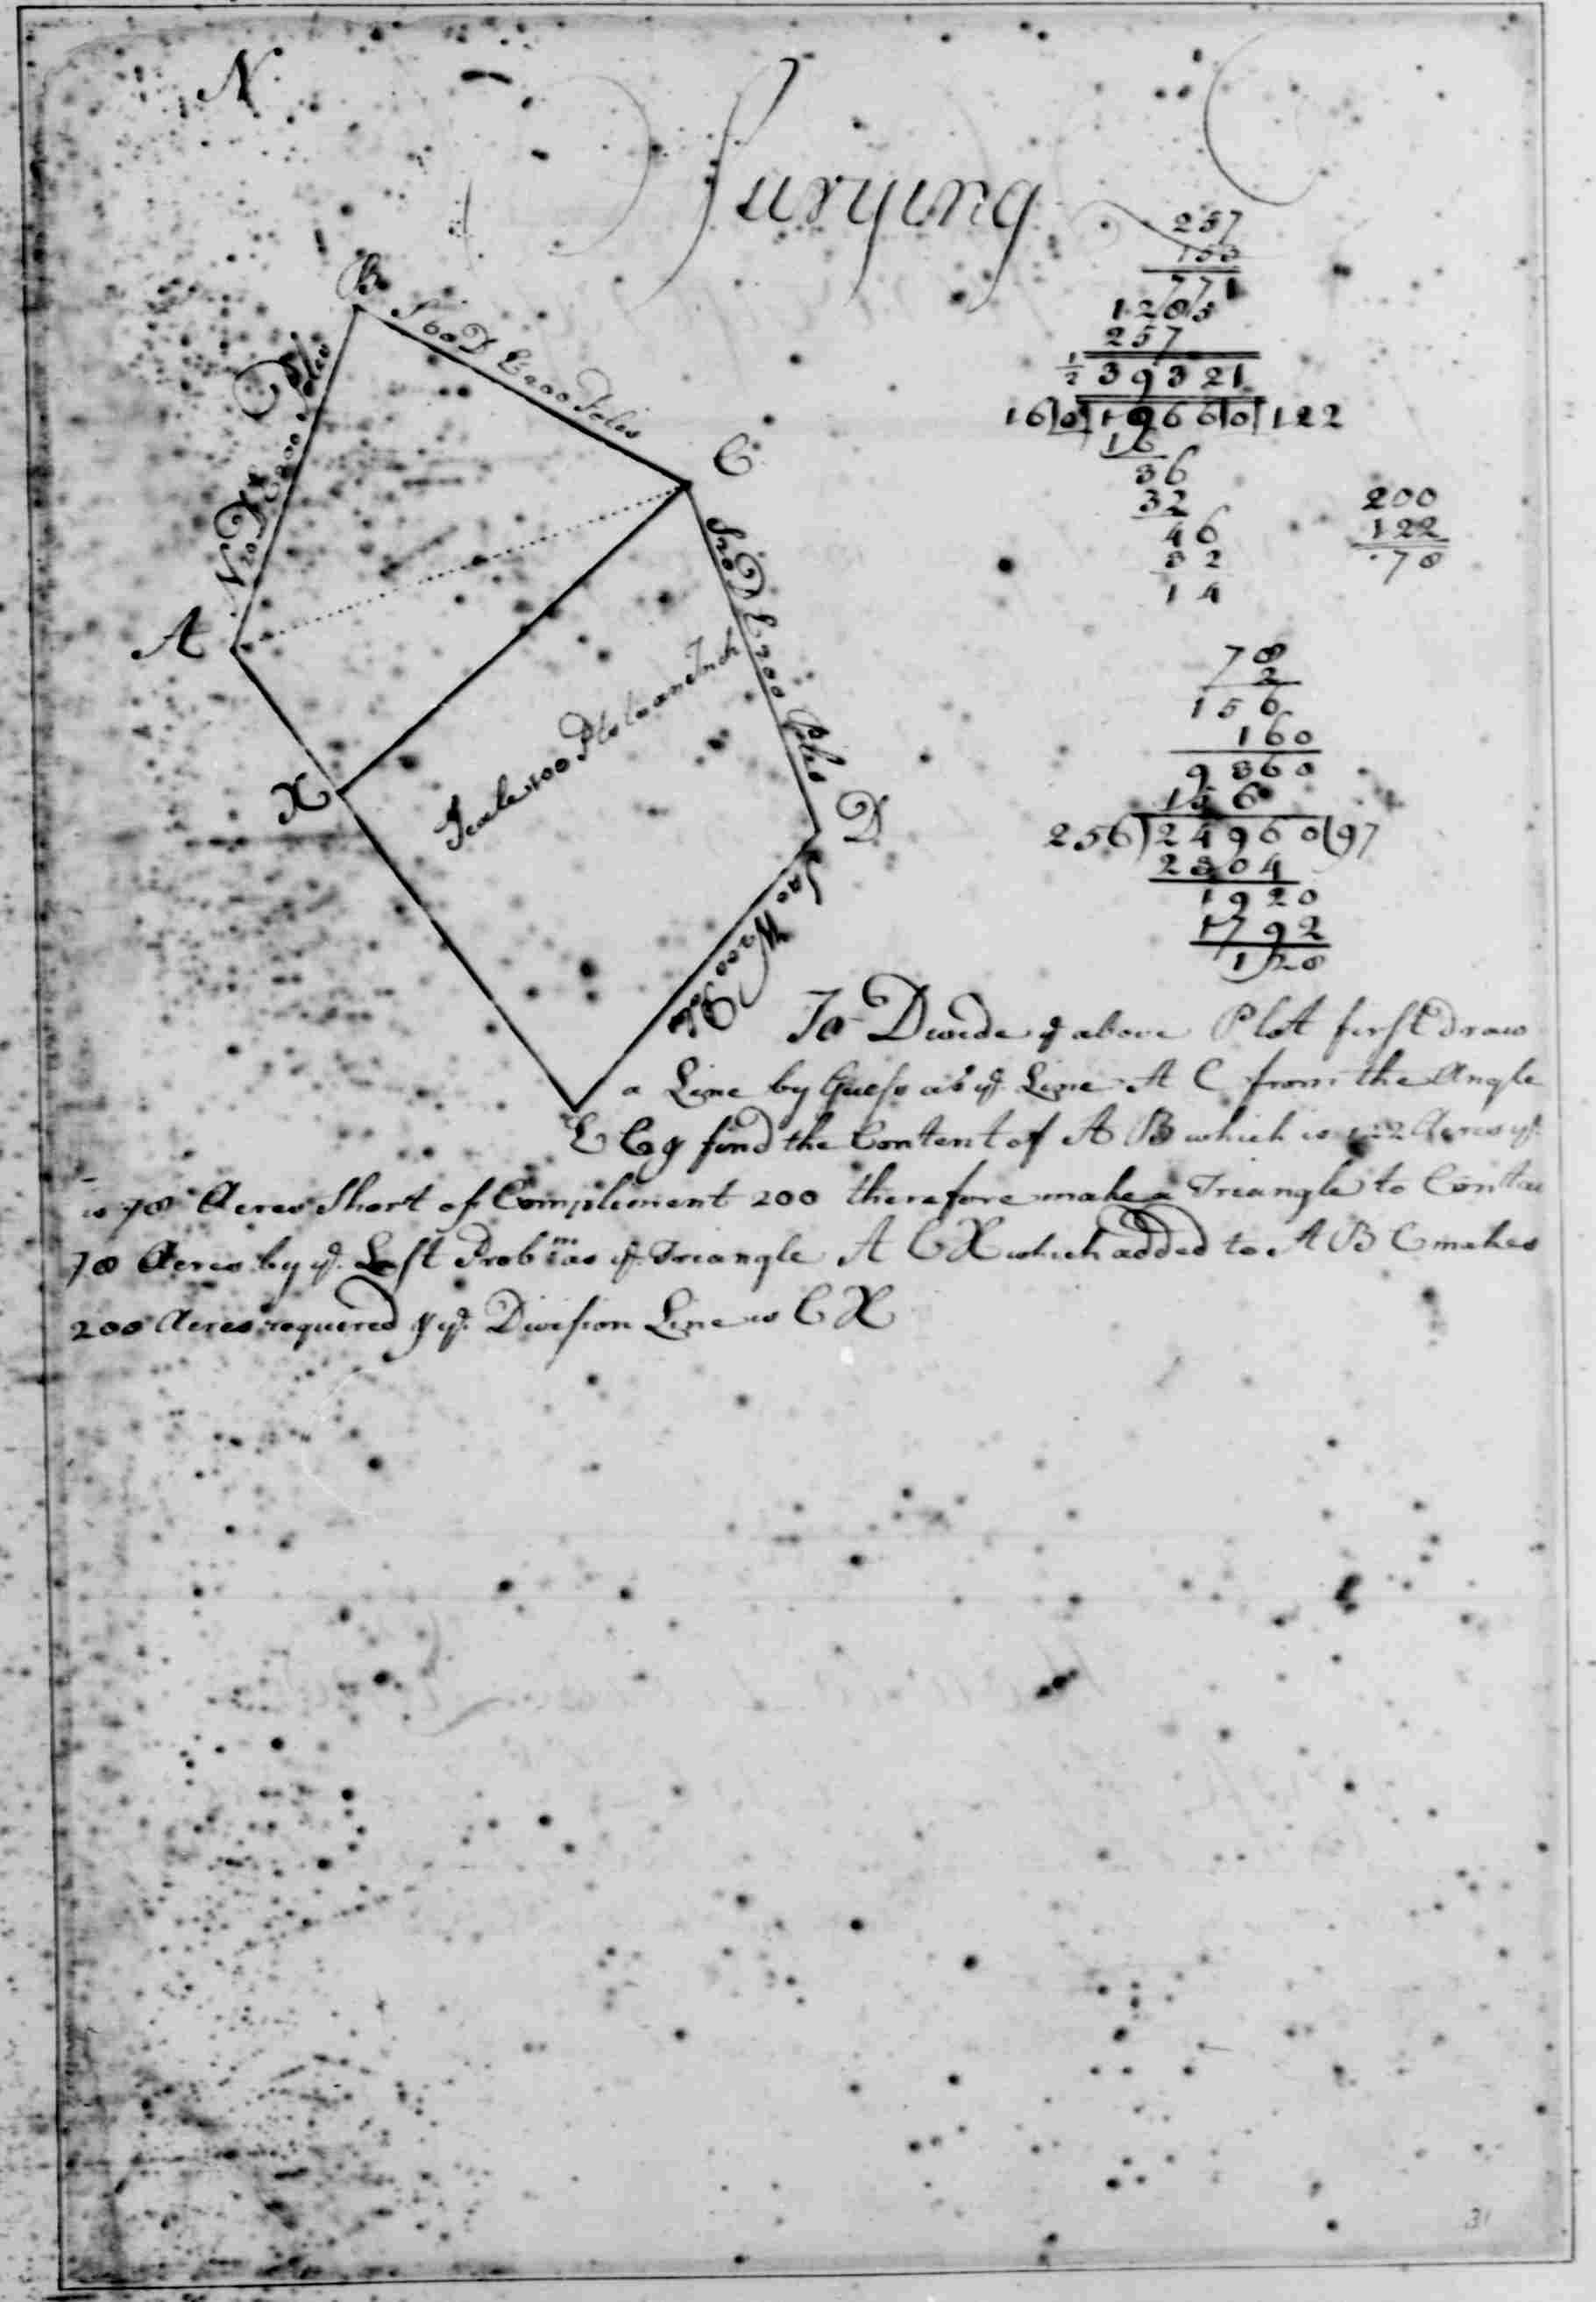 N
Survying
B
S 60 D E 200 Poles
C
N 20 D E 200 Poles
A
S 20 D E 200 Poles
Scale 100 Pls to an Inch
X
D
S 40 W 200 Pol
E
257
153
771
1285
257
1/2 39321
160)19660(122
16
36
32
46
32
14
200
122
78
78
2
156
160
9360
156
256)24960(97
2304
1920
1792
128
To Divide ye above Plot first draw
a Line by Guess as ye Line A C from the Angle
C & find the Content of A B which is 122 Acres yt
is 78 Acres Short of Complement 200 therefore make a Triangle to Contai
78 Acres by ye Last Probm as ye Triangle A C X which added to A B C makes
200 Acres required & ye Division Line is C X
31